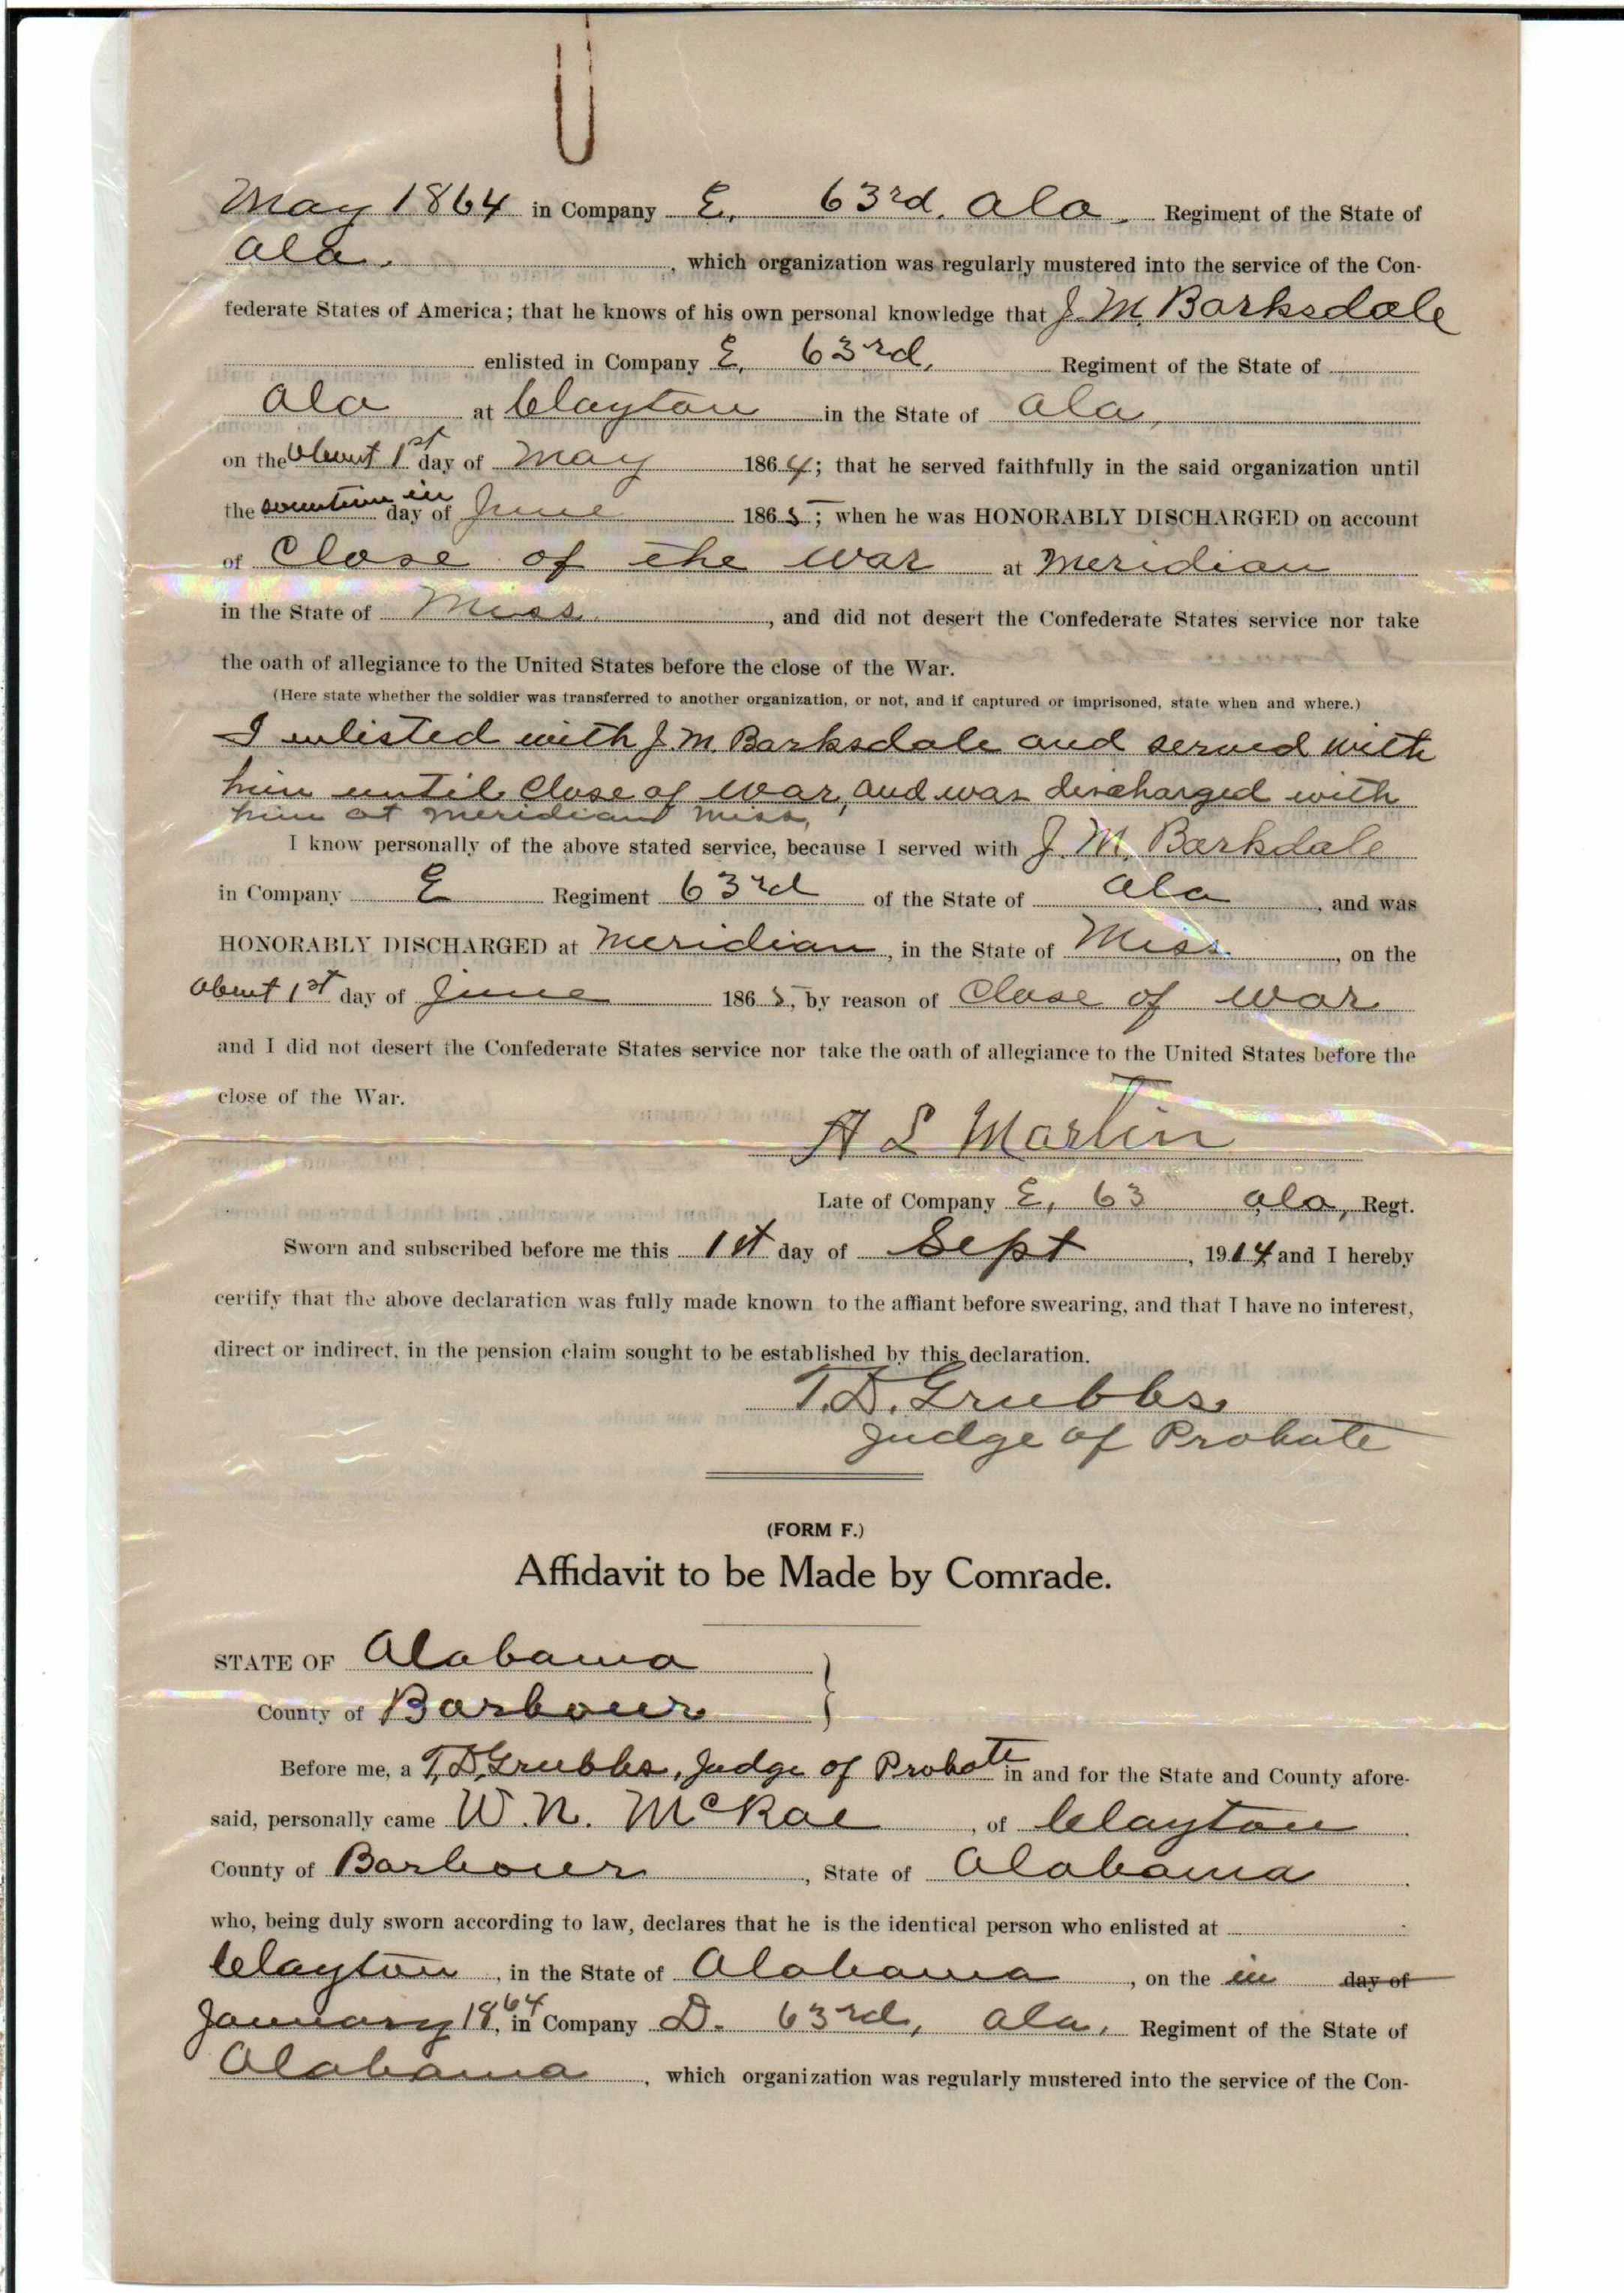 May 1864 in Company E, 63rd. Ala. Regiment of the State of
Ala. , which organization was regularly mustered into the service of the Con-
federate States of America; that he knows of his own personal knowledge that J. M. Barksdale
enlisted in Company E, 63rd, Regiment of the State of
Ala at Clayton in the State of Ala,
on the about 1st day of May 1864; that he served faithfully in the said organization until
the sometime in day of June 1865; when he was HONORABLY DISCHARGED on account
of Close of the War at Meridian
in the State of Miss. , and did not desert the Confederate States service nor take
the oath of allegiance to the United States before the close of the War.
(Here state whether the soldier was transferred to another organization, or not, and if captured or imprisoned, state when and where.)
I enlisted with J. M. Barksdale and served with
him until Close of War, and was discharged with
him at Meridian Miss,
I know personally of the above stated service, because I served with J. M. Barkdale
in Company E Regiment 63rd of the State of Ala , and was
HONORABLY DISCHARGED at Meridian , in the State of Miss. , on the
about 1st day of June 1865, by reason of Close of War
and I did not desert the Confederate States service nor take the oath of allegiance to the United States before the
close of the War.
A L Martin
Late of Company E, 63 Ala, Regt.
Sworn and subscribed before me this 1st day of Sept , 1914 and I hereby
certify that the above declaration was fully made known to the affiant before swearing, and that I have no interest,
direct or indirect, in the pension claim sought to be established by this declaration.
T. D. Grubbs,
Judge of Probate
(FORM F.)
Affidavit to be Made by Comrade.
STATE OF Alabama
County of Barbour
Before me, a T. D. Grubbs, Judge of Probate in and for the State and County afore-
said, personally came W. N. McRae , of Clayton
County of Barbour , State of Alabama
who, being duly sworn according to law, declares that he is the identical person who enlisted at
Clayton , in the State of Alabama , on the in day of
January 1864, in Company D. 63rd, Ala. Regiment of the State of
Alabama , which organization was regularly mustered into the service of the Con-